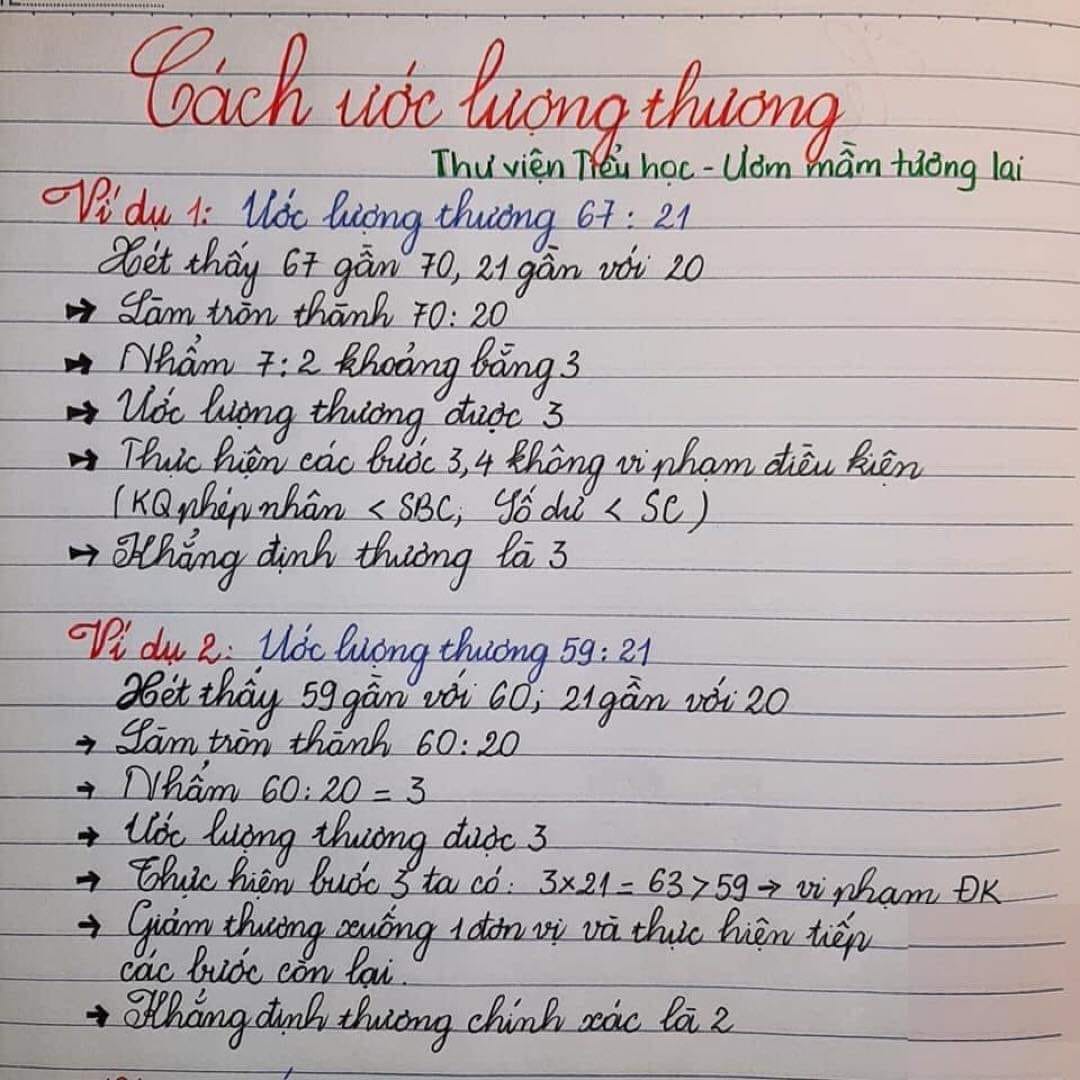 Cách ước lượng thương
Thư viện Tiểu học - Ươm mầm tương lai
Ví dụ 1: Ước lượng thương 67 : 21
Xét thấy 67 gần 70, 21 gần với 20
➻ Làm tròn thành 70 : 20
➻ Nhẩm 7 : 2 khoảng bằng 3
➻ Ước lượng thương được 3
➻ Thực hiện các bước 3, 4 không vi phạm điều kiện
(KQ phép nhân < SBC; Số dư < SC)
➻ Khẳng định thương là 3
Ví dụ 2: Ước lượng thương 59 : 21
Xét thấy 59 gần với 60; 21 gần với 20
→ Làm tròn thành 60 : 20
→ Nhẩm 60 : 20 = 3
→ Ước lượng thương được 3
→ Thực hiện bước 3 ta có: 3 x 21 = 63 > 59 → vi phạm ĐK
→ Giảm thương xuống 1 đơn vị và thực hiện tiếp
các bước còn lại.
→ Khẳng định thương chính xác là 2